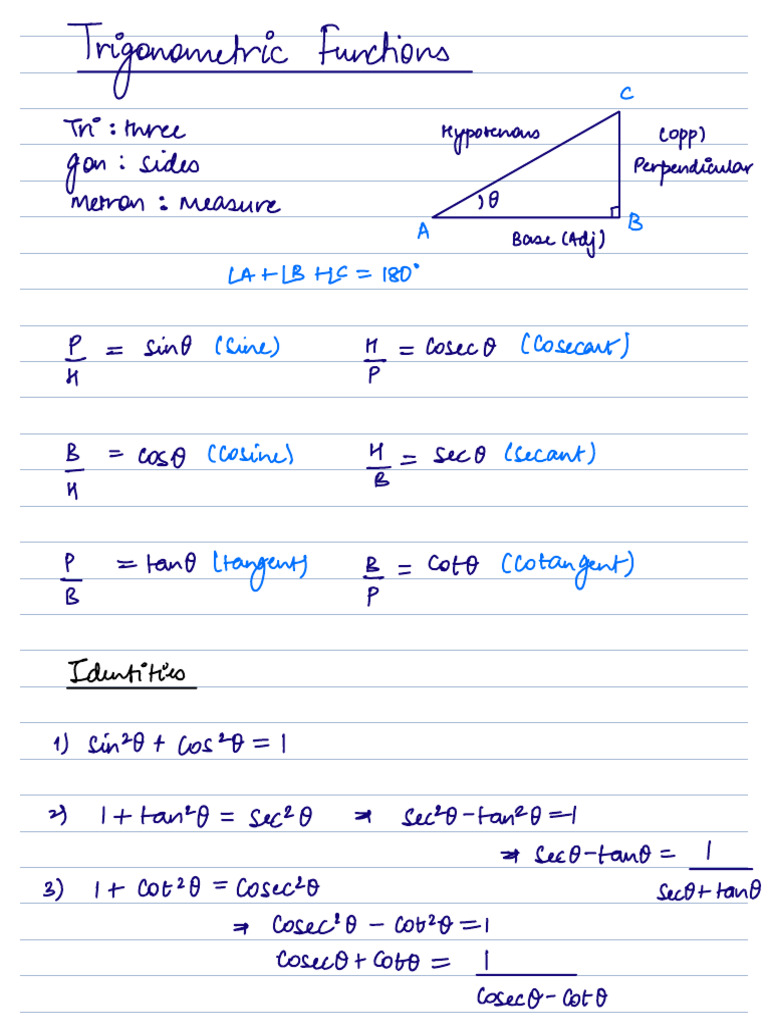 Trigonometric Functions
Tri : three
gon : sides
metron : measure
C
Hypotenous
(opp)
Perpendicular
θ
A
B
Base (Adj)
∠A + ∠B + ∠C = 180°
P/H = sinθ (Sine)
H/P = Cosec θ (Cosecant)
B/H = cosθ (Cosine)
H/B = sec θ (secant)
P/B = tanθ (tangent)
B/P = Cotθ (Cotangent)
Identities
1) sin²θ + cos²θ = 1
2) 1 + tan²θ = sec²θ ⇒ sec²θ - tan²θ = 1
⇒ secθ - tanθ = 1/(secθ + tanθ)
3) 1 + Cot²θ = Cosec²θ
⇒ Cosec²θ - Cot²θ = 1
Cosecθ + Cotθ = 1/(Cosecθ - Cotθ)